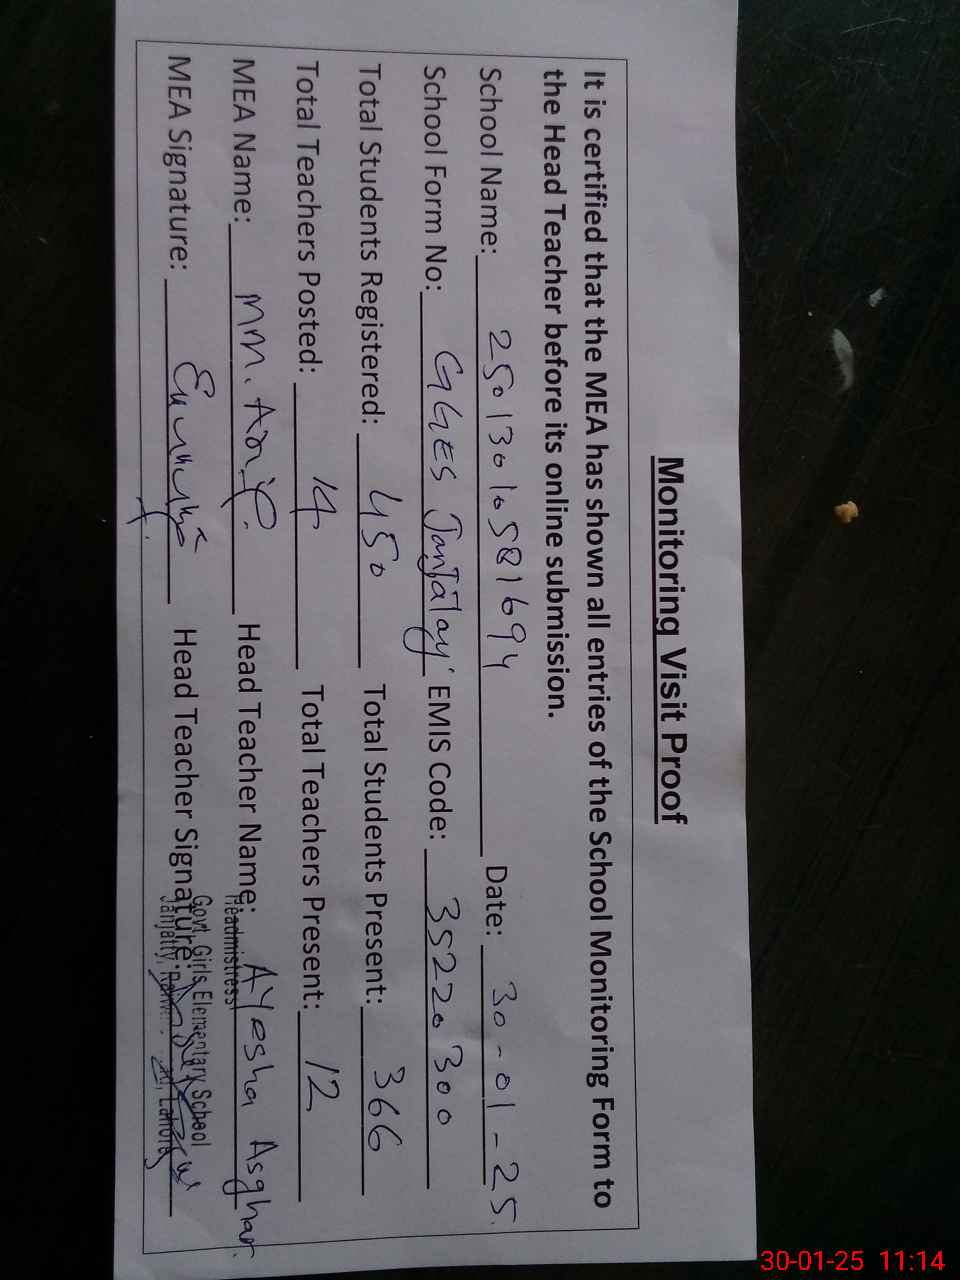 Monitoring Visit Proof
It is certified that the MEA has shown all entries of the School Monitoring Form to
the Head Teacher before its online submission.
School Name: 25013010581694 Date: 30-01-25.
School Form No: GGES Janjatay EMIS Code: 35220300
Total Students Registered: 450 Total Students Present: 366
Total Teachers Posted: 14 Total Teachers Present: 12
MEA Name: MM. Asif. Head Teacher Name: AYesha Asghar.
Headmistress
MEA Signature: Head Teacher Signature:
Govt. Girls Elementary School
Lahore
30-01-25 11:14